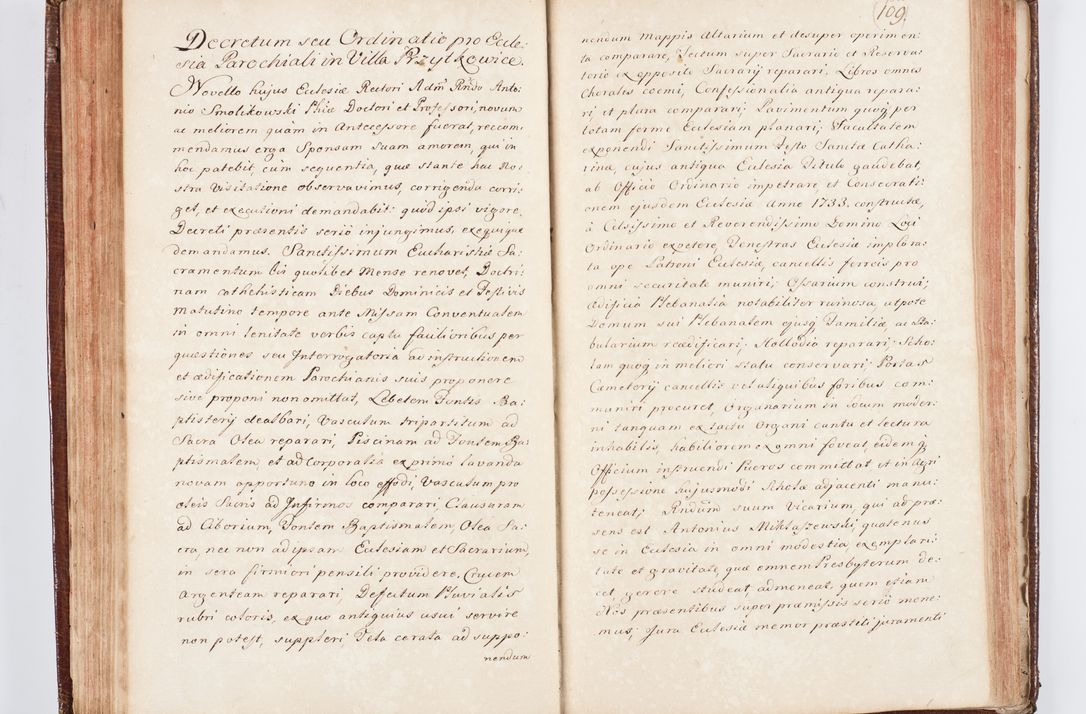 Decretum seu Ordinatio pro Eccle-
sia Parochiali in Villa Przytkowice.
Novello hujus Ecclesiæ Rectori Adm Rndo Anto-
nio Smolikowski Phiæ Doctori et Professori, novum
ac meliorem quam in Antecessore fuerat, recom-
mendamus erga Sponsam suam amorem, qui in
hoc patebit, cum sequentia, quæ stante hac No-
stra Visitatione observavimus, corrigenda corri-
get, et executioni demandabit: quod ipsi vigore
Decreti præsentis serio injungimus, exequique
demandamus. Sanctissimum Eucharistiæ Sa-
cramentum bis quolibet Mense renovet, Doctri-
nam cathehisticam Diebus Dominicis et Festivis
matutino tempore ante Missam Conventualem
in omni lenitate verbis captu facilioribus per
quæstiones seu Interrogatoria ad instructionem
et ædificationem Parochianis suis proponere
sive proponi non omittat, Lebetem Fontis Ba-
ptisterij dealbari, Vasculum tripartitum ad
Sacra Olea reparari, Piscinam ad Fontem Ba-
ptismalem, et ad Corporalia ex primo lavanda
novam opportuno in loco effodi, Vasculum pro
oleis Sacris ad Infirmos comparari, Clausuram
ad Ciborium, Fontem Baptismalem, Olea Sa-
cra, nec non ad ipsam Ecclesiam et Sacrarium,
in sera firmiori pensili providere. Crucem
argenteam reparari, Defectum Pluvialis
rubri coloris, ex quo antiquius usui servire
non potest, suppleri, Tela cerata ad suppo-
nendum
109.
nendum Mappis Altarium et desuper operimen-
ta comparare, Tectum super Sacrario et Reservas
torio ex opposito Sacrarij reparari, Libros omnes
Chorales coemi, Confessionalia antiqua repara-
ri, et plura comparari; Pavimentum quoq per
totam ferme Ecclesiam planari; Facultatem
exponendi Sanctissimum Festo Sanctæ Catha-
rinæ, cujus antiqua Ecclesia Titulo gaudebat,
ab Officio Ordinario impetrare, et Consecrati-
onem ejusdem Ecclesiæ Anno 1733. constructæ,
à Celsissimo et Reverendissimo Domino Loci
Ordinario expetere, Fenestras Ecclesiæ implora-
ta ope Patroni Ecclesiæ, cancellis ferreis pro
omni securitate muniri; Ossarium construi;
ædificia Plebanalia notabiliter ruinosa, utpote
Domum sui Plebanalem ejusq Familiæ, ac sta-
bularium reædificari; Hollodia reparari; Scho-
lam quoq in meliori statu conservari; Portas
Cæmeterij cancellis vel aliquibus foribus com-
muniri procuret, Organarium in locum moder-
ni tanquam ex tactu Organi cantu et lectura
inhabilis, habiliorem ex omni foveat, eidem q
Officium instruendi Pueros committat et in agri
possessione hujusmodi Scholæ adjacenti manu-
teneat; Rndum suum Vicarium, qui ad præ-
sens est Antonius Mikłaszewski, quatenus
se in Ecclesia in omni modestia, exemplari-
tate et gravitate, quæ omnem Presbyterum de-
cet, gerere studeat, admoneat, quem etiam
Nos præsentibus super præmissis serio mone-
mus; Jura Ecclesiæ memor præstiti juramenti